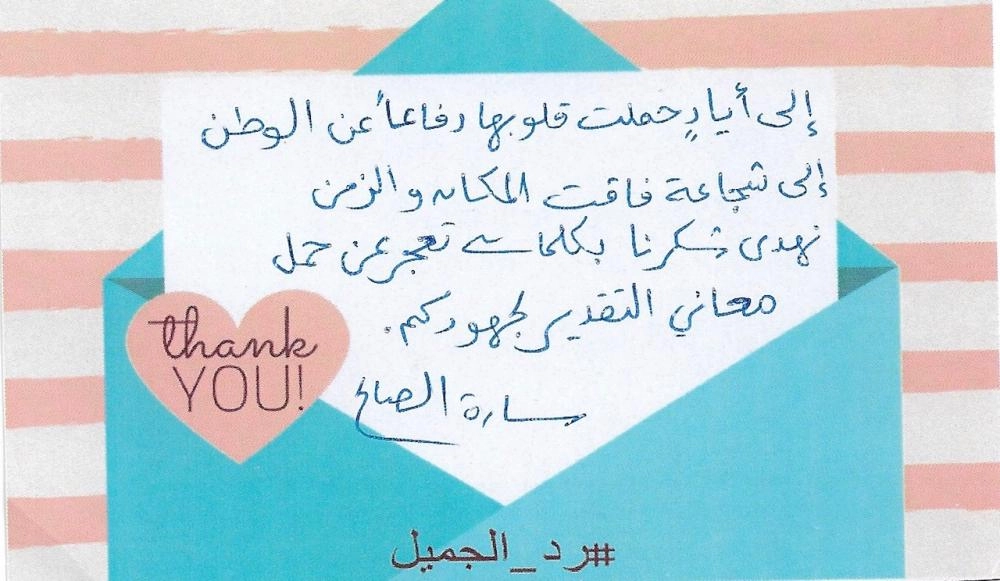 إلى أيادٍ حملت قلوبها دفاعاً عن الوطن
إلى شجاعة فاقت المكان والزمن
نهدي شكرنا بكلمات تعجز عن حمل
معاني التقدير لجهودكم.
سارة الصالح
thank
YOU!
#رد_الجميل